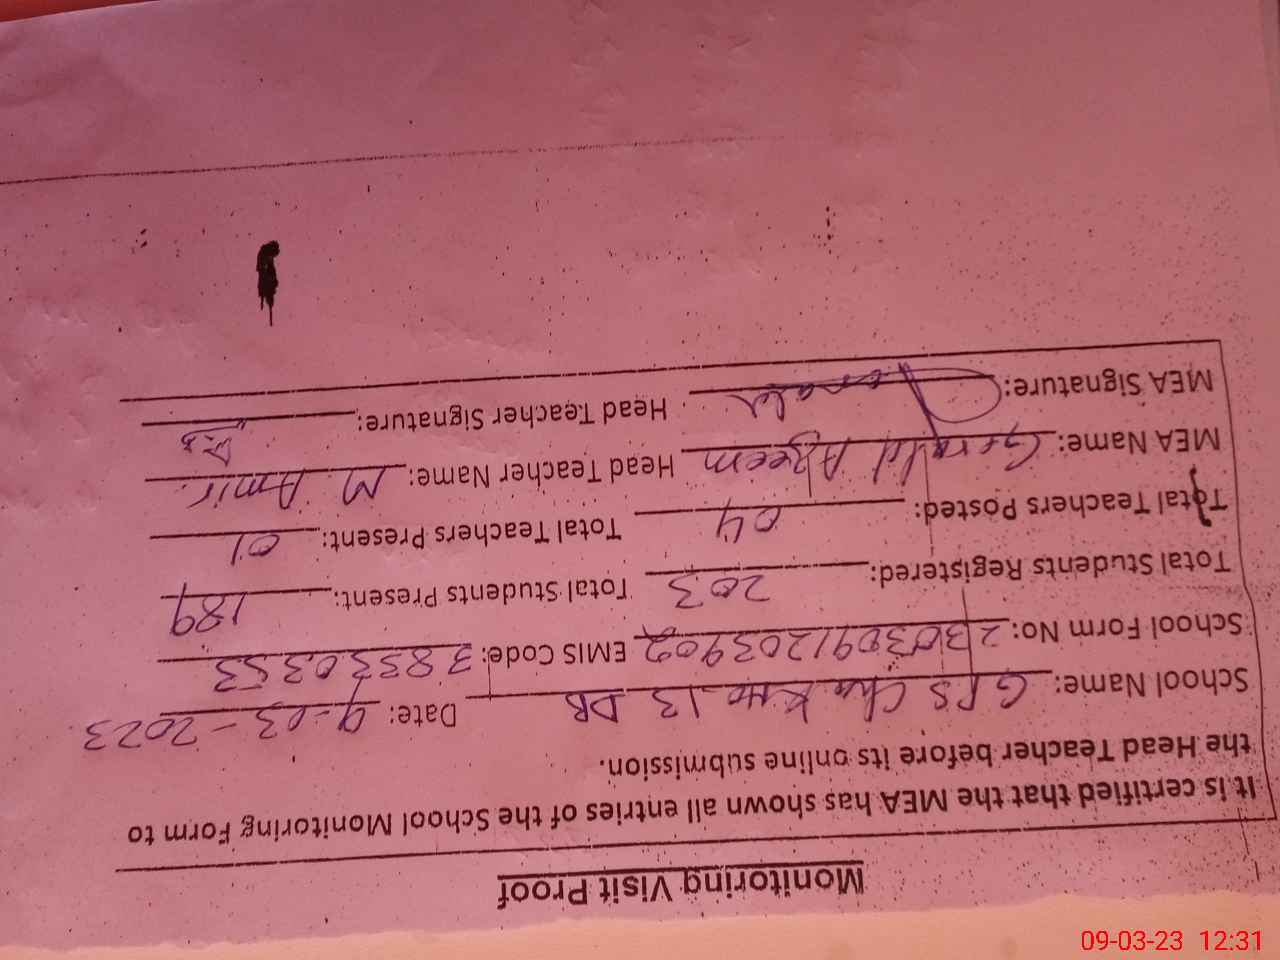 Monitoring Visit Proof
It is certified that the MEA has shown all entries of the School Monitoring Form to
the Head Teacher before its online submission.
School Name: GPS Chak No. 13 DB Date: 9-03-2023
School Form No: 230309120390 EMIS Code: 38330353
Total Students Registered: 203 Total Students Present: 189
Total Teachers Posted: 04 Total Teachers Present: 01
MEA Name: Gerald Azeem Head Teacher Name: M Amir
MEA Signature: Head Teacher Signature:
09-03-23 12:31